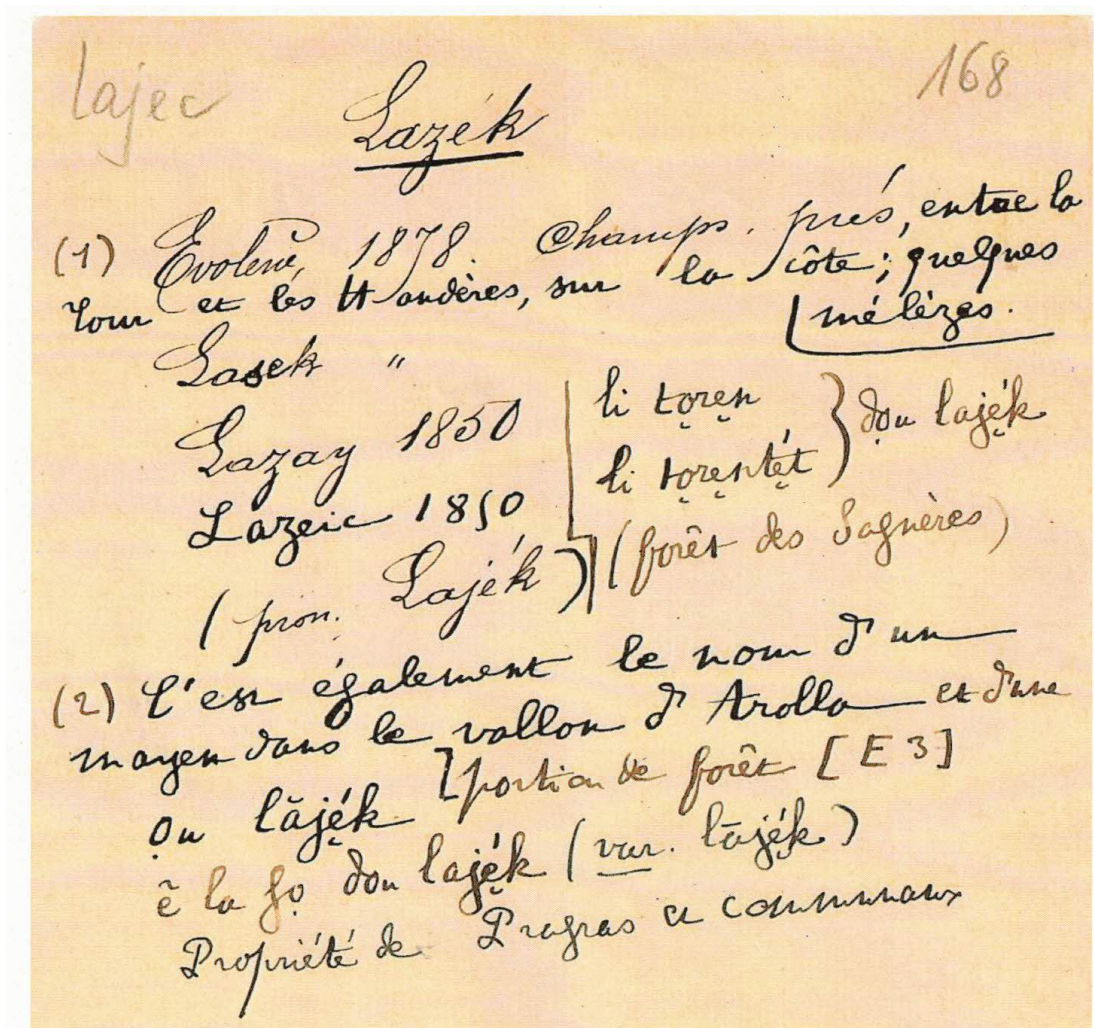 lajec
168
Lazék
(1) Evolène, 1878. Champs. prés, entre la
Tour et les Haudères, sur la côte; quelques
mélèzes.
Lasek "
Lazay 1850
Lazeic 1850
(pron. Lajék)
li tọrẹn
li tọrẹntẹ́t
dọu lajẹ́k
(forêt des Sagnères)
(2) C'est également le nom d'un
mayen dans le vallon d'Arolla et d'une
portion de forêt [E 3]
ọu lājẹ́k
ẽ la fọ dọu lajẹ́k (var. lājẹ́k)
Propriété de Pragras et communaux